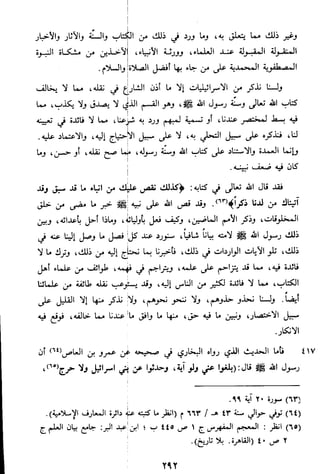 وغير ذلك مما يتعلق به، وما ورد في ذلك من الكتاب والسنة والآثار والأخبار
المنقولة المقبولة عند العلماء، وورثة الأنبياء، الآخذين من مشكاة النبوة
المصطفوية المحمدية على من جاء بها أفضل الصلاة والسلام.
ولسنا نذكر من الإسرائيليات إلا ما أذن الشارع في نقله، مما لا يخالف
كتاب الله تعالى وسنة رسوله ﷺ، وهو القسم الذي لا يصدق ولا يكذب، مما
فيه بسط لمختصر عندنا، أو تسمية لمبهم ورد به شرعنا، مما لا فائدة في تعيينه
لنا، فنذكره على سبيل التحلي به، لا على سبيل الاحتياج إليه والاعتماد عليه.
وإنما العمدة والاستناد على كتاب الله وسنة رسوله، ما صح نقله، أو حسن، وما
كان فيه ضعف نبينه.
فقد قال الله تعالى في كتابه: ﴿كذلك نقص عليك من أنباء ما قد سبق وقد
آتيناك من لدنا ذكرا﴾(٦٣). وقد قص الله على نبيه ﷺ خبر ما مضى من خلق
المخلوقات، وذكر الأمم الماضين، وكيف فعل بأوليائه، وماذا أحل بأعدائه، وبين
رسول الله ﷺ لأمته بيانا شافيا، سنورد عند كل فصل ما وصل إلينا عنه في
ذلك، تلو الآيات الواردات في ذلك، فأخبرنا بما نحتاج إليه من ذلك، وترك ما لا
فائدة فيه، مما قد يتزاحم على علمه، ويتراجم في فهمه، طوائف من علماء أهل
الكتاب، مما لا فائدة فيه لكثير من الناس إليه، وقد يستوعب نقله طائفة من علمائنا
أيضا. ولسنا نحذو حذوهم، ولا ننحو نحوهم، ولا نذكر منها إلا القليل على
سبيل الاختصار، ونبين ما فيه حق، مما وافق ما عندنا، وما خالفه، فوقع فيه
الإنكار.
٤١٧ فأما الحديث الذي رواه البخاري في صحيحه عن عمرو بن العاص(٦٤) أن
رسول الله ﷺ قال: (بلغوا عني ولو آية، وحدثوا عن بني إسرائيل ولا حرج(٦٥)،
(٦٣) سورة ٢٠ آية ٩٩.
(٦٥) انظر : المعجم المفهرس ج ١ ص ٤٤٥
ص ٤٠
٢٩٢